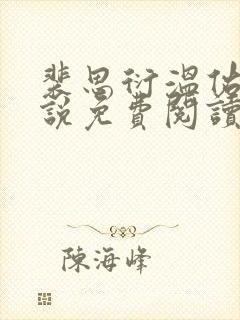 裴思衍溫佑
說免費閱讀
陳海峰